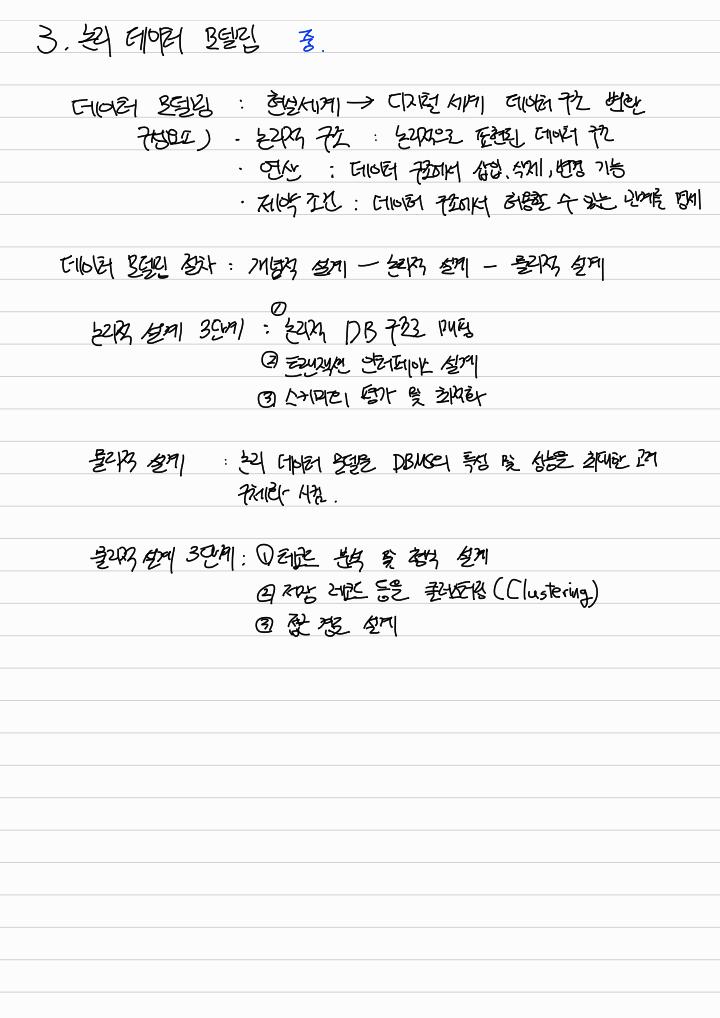 3. 논리 데이터 모델링 중.
데이터 모델링 : 현실세계 → 디지털 세계 데이터 구조 변환
구성요소) · 논리적 구조 : 논리적으로 표현된 데이터 구조
· 연산 : 데이터 구조에서 삽입, 삭제, 변경 기능
· 제약 조건 : 데이터 구조에서 허용할 수 있는 관계를 명세
데이터 모델링 절차 : 개념적 설계 - 논리적 설계 - 물리적 설계
논리적 설계 3단계 : ① 논리적 DB 구조로 매핑
② 트랜잭션 인터페이스 설계
③ 스키마의 평가 및 최적화
물리적 설계 : 논리 데이터 모델을 DBMS의 특성 및 성능을 최대한 고려
구체화 시킴.
물리적 설계 3단계 : ① 레코드 분석 및 형식 설계
② 저장 레코드 등을 클러스터링 (Clustering)
③ 접근 경로 설계